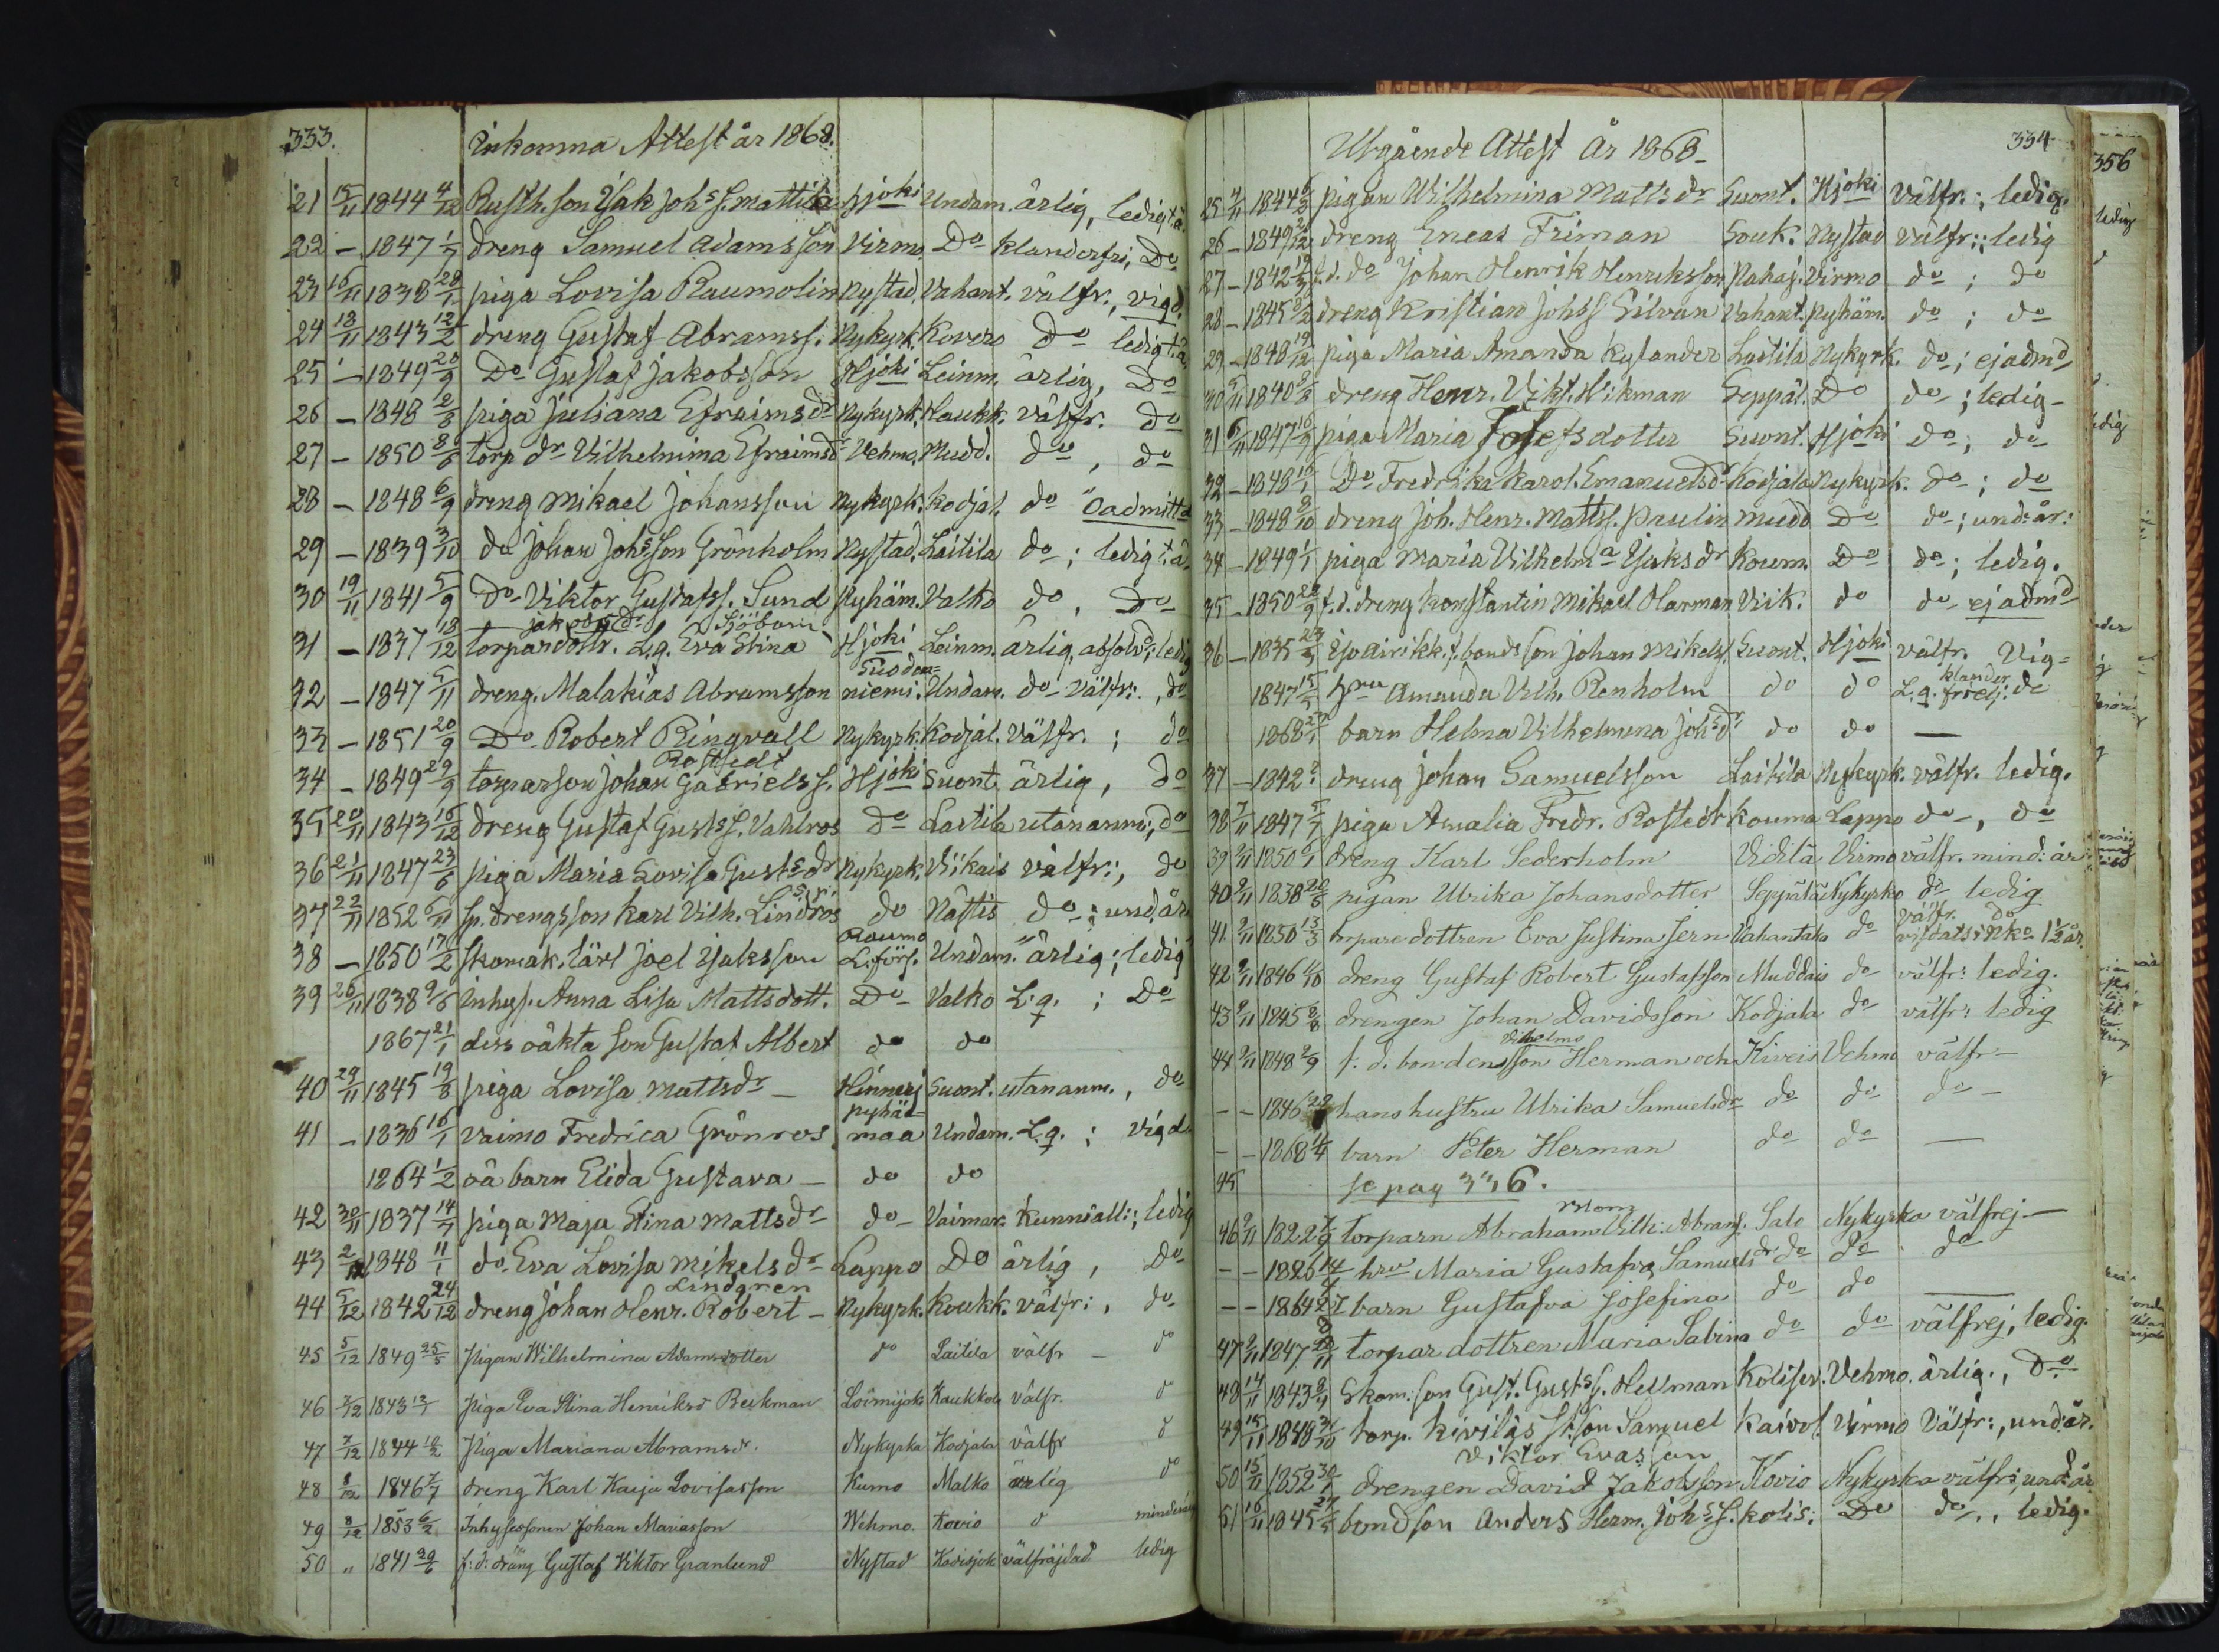 333. Inkomna Attest år 1868.
21 15/11 1844 4/12 Rusth. son Isak Johs s. Mattila Hjoki Undam. ärlig, ledig t.ä.
22 – 1847 1/7 dreng Samuel Adamsson Virmo Do klanderfri, Do
23 16/11 1838 28/1 piga Lovisa Raumolin Nystad Vahant. välfr., vigd.
24 18/11 1843 12/2 dreng Gustaf Abramss. Nykyrk. Kovero Do ledig t.ä.
25 – 1849 20/9 Do Gustaf Jakobsson Hjoki Leinm. ärlig, Do
26 – 1848 12/8 piga Juliana Efraimsdr Nykyrk. Haukk. välfr. Do
27 – 1850 8/6 torp dr Vilhelmina Efraimsdr Vehmo. Mudd. do, do
28 – 1848 6/9 dreng Mikael Johansson Nykyrk. Kodjal. do Oadmittd
29 – 1839 3/10 do Johan Johsson Grönholm Nystad. Laitila do; ledig t.ä.
30 19/11 1841 5/9 Do Viktor Gustafss. Sund Pyhäm. Valko do, Do
Jakobsdr Sjöbom
31 – 1837 18/12 torpardottr. L.q. Eva Stina Hjoki Leinm. ärlig, absolvd; ledig
Suoden=
32 – 1847 5/11 dreng. Malakias Abramsson niemi. Undam. do välfr:, do
33 – 1851 20/9 Do Robert Ringvall Nykyrk. Kodjal. välfr.; do
Rostedt
34 – 1849 29/9 torparson Johan Gabrielss. Hjoki Suont. ärlig, do
35 20/11 1843 16/12 dreng Gustaf Gusts s. Vahlros do Laitila utananm:, do
36 21/11 1847 23/6 piga Maria Lovisa Gusts dr Nykyrk. Viikais välfr:, do
37 22/11 1852 6/11 sp. drengsson Karl Vilh. Lindros do Nästis do; und. år
Raumo
38 – 1850 17/2 skomak. lärl Joel Isaksson L.förs. Undam. ärlig; ledig
39 26/11 1838 9/6 Inhys. Anna Lisa Mattsdott. Do Valko L.q.; Do
1867 21/1 dess oäkta son Gustaf Albert do do
40 29/11 1845 19/8 piga Lovisa Mattsdr – Hinnerj Suont. utananm., do
Pyhä=
41 – 1836 16/1 Vaimo Fredrica Grönros maa Undam. L.q.; vigd
1864 1/2 oä barn Elida Gustava – do do
42 30/11 1837 14/7 piga Maja Stina Mattsdr do Vaimar. Kunniall:; ledig
43 2/12 1848 11/1 do Eva Lovisa Mikelsdr Lappo Do ärlig, Do
Lindgren
44 5/12 1842 24/12 dreng Johan Henr. Robert – Nykyrk. Koukk. välfr:, do
45 5/12 1849 25/5 Pigan Wilhelmina Adamsdotter do Laitila välfr – do
46 7/12 1843 13/7 Piga Eva Stina Henriksd Beckman Loimijoki Kaukkola välfr. do
47 7/12 1844 10/2 Piga Mariana Abramsdr. Nykyrka Kodjala välfr do
48 8/12 1846 7/7 dreng Karl Kaija Lovisasson Kumo Malko ärlig do
49 8/12 1853 6/2 Inhysessonen Johan Mariasson Wehmo. Kovio d minderårig
50 " 1841 29/6 f:d: dräng Gustaf Viktor Granlund Nystad Kodisjoki välfräjdad ledig
Utgående Attest År 1868 – 334
25 4/11 1844 6/2 pigan Wilhelmina Mattsdr Suont. Hjoki välfr:, ledig.
26 – 1849 22/12 dreng Eneas Friman Souk. Nystad välfr:; ledig
27 – 1842 19/3 f.d. do Johan Henrik Henriksson Nahaj. Virmo do; do
28 – 1845 8/2 dreng Kristian Johss Silvan Vahant. Pyhäm. do; do
29 – 1848 19/12 piga Maria Amanda Kylander Laitila Nykyrk. do; ej admd
30 5/11 1840 8/8 dreng Henr. Vikt. Vikman Seppäl. Do do; ledig –
31 6/11 1847 16/9 piga Maria Josefsdotter Suont. Hjoki do; do
32 – 1848 16/1 Do Fredrika Karol. Emanuelsdr Kodjala Nykyrk. do; do
33 – 1848 8/10 dreng Joh. Henr. Mattss. Paulin Mudd Do do; und: år:
34 – 1849 1/1 piga Maria Vilhelma Isaksdr Koum. Do do; ledig.
35 – 1850 28/9 f.d. dreng Konstantin Mikael Harman Viik. do do ej admd
36 – 1835 23/5 bondsson Johan Mikels. Suont. Hjoki välfr. Vig=
klander
1847 15/5 hru Amanda Vilh. Renholm do do L.q. friel:. do
1868 27/1 barn Helma Vilhelmina Johsdr do do —
37 – 1842 dreng Johan Samuelsson Laitila Nykyrk. välfr. ledig.
38 7/11 1847 5/7 piga Amalia Fredr. Rostedt Kouma Lappo do, do
39 9/11 1850 6/1 dreng Karl Sederholm Vidilä Virmo välfr. mind: år
40 9/11 1838 20/6 pigan Ulrika Johansdotter Seppälä Nykyrko do ledig
välfr. do
41 9/11 1850 13/3 torpare dottren Eva Justina Jern Vahantaka do vistats i Nko 1½ år.
42 9/11 1846 4/10 dreng Gustaf Robert Gustafsson Muddais do välfr: ledig.
43 9/11 1845 8/8 drengen Johan Davidsson Kodjala do välfr: ledig
Vilhelms
44 9/11 1848 9/9 f. d. bondensson Herman och Kiveis Vehmo välfr –
– – 1846 28 hans hustru Ulrika Samuelsdr do do do –
– – 1868 14/4 barn Peter Herman do do —
45 se pag 336.
Blom
46 9/11 1822 7/9 torparn Abraham Vilh: Abrams. Salo Nykyrka välfrej –
– – 1826 14/4 hru Maria Gustafva Samuelsdr do do do
– – 1864 27/8 barn Gustafva Josefina do do —
47 9/11 1847 28/11 torpar dottren Maria Sabina do do välfrej, ledig.
48 14/11 1843 8/4 Skom: son Gust. Gusts s. Hellman Koliser. Vehmo. ärlig., Do
49 15/11 1848 31/10 torp. Kivilas st. son Samuel Kaivol. Virmo välfr:, und: år.
Viktor Evasson
50 15/11 1852 30/7 drengen David Jakobsson Kovio Nykyrka välfr:, und: år
51 16/11 1845 27/5 bondson Anders Herm. Johs s. kolis: Do do., ledig.
356
ledig